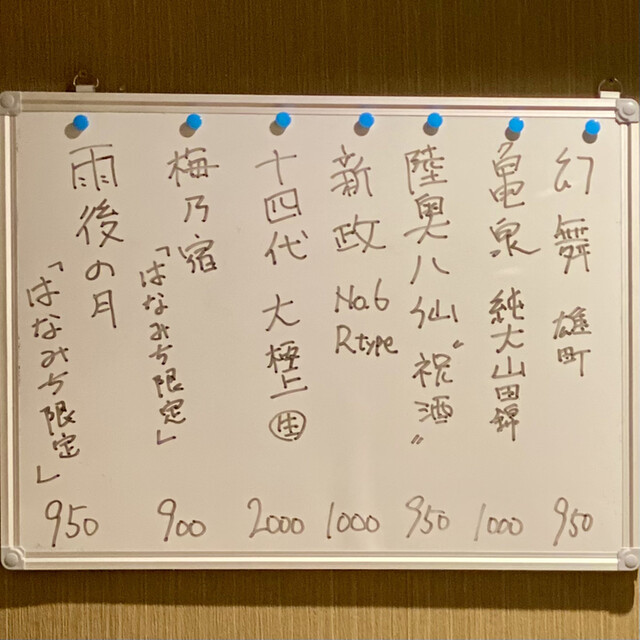 幻舞 雄町 950
亀泉 純大山田錦 1000
陸奥八仙 "祝酒" 950
新政 No6 Rtype 1000
十四代 大極上 ㊤生 2000
梅乃宿 「はなみち限定」 900
雨後の月 「はなみち限定」 950